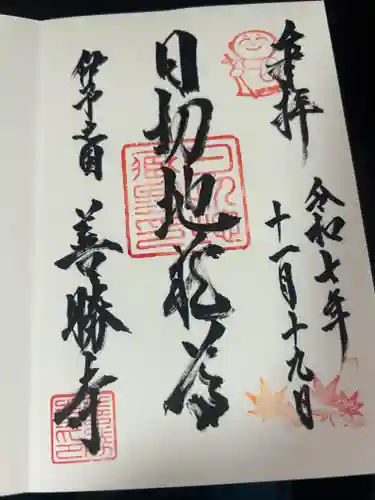 奉拝
令和七年
十一月十九日
日切地蔵尊
伊予之国
善勝寺